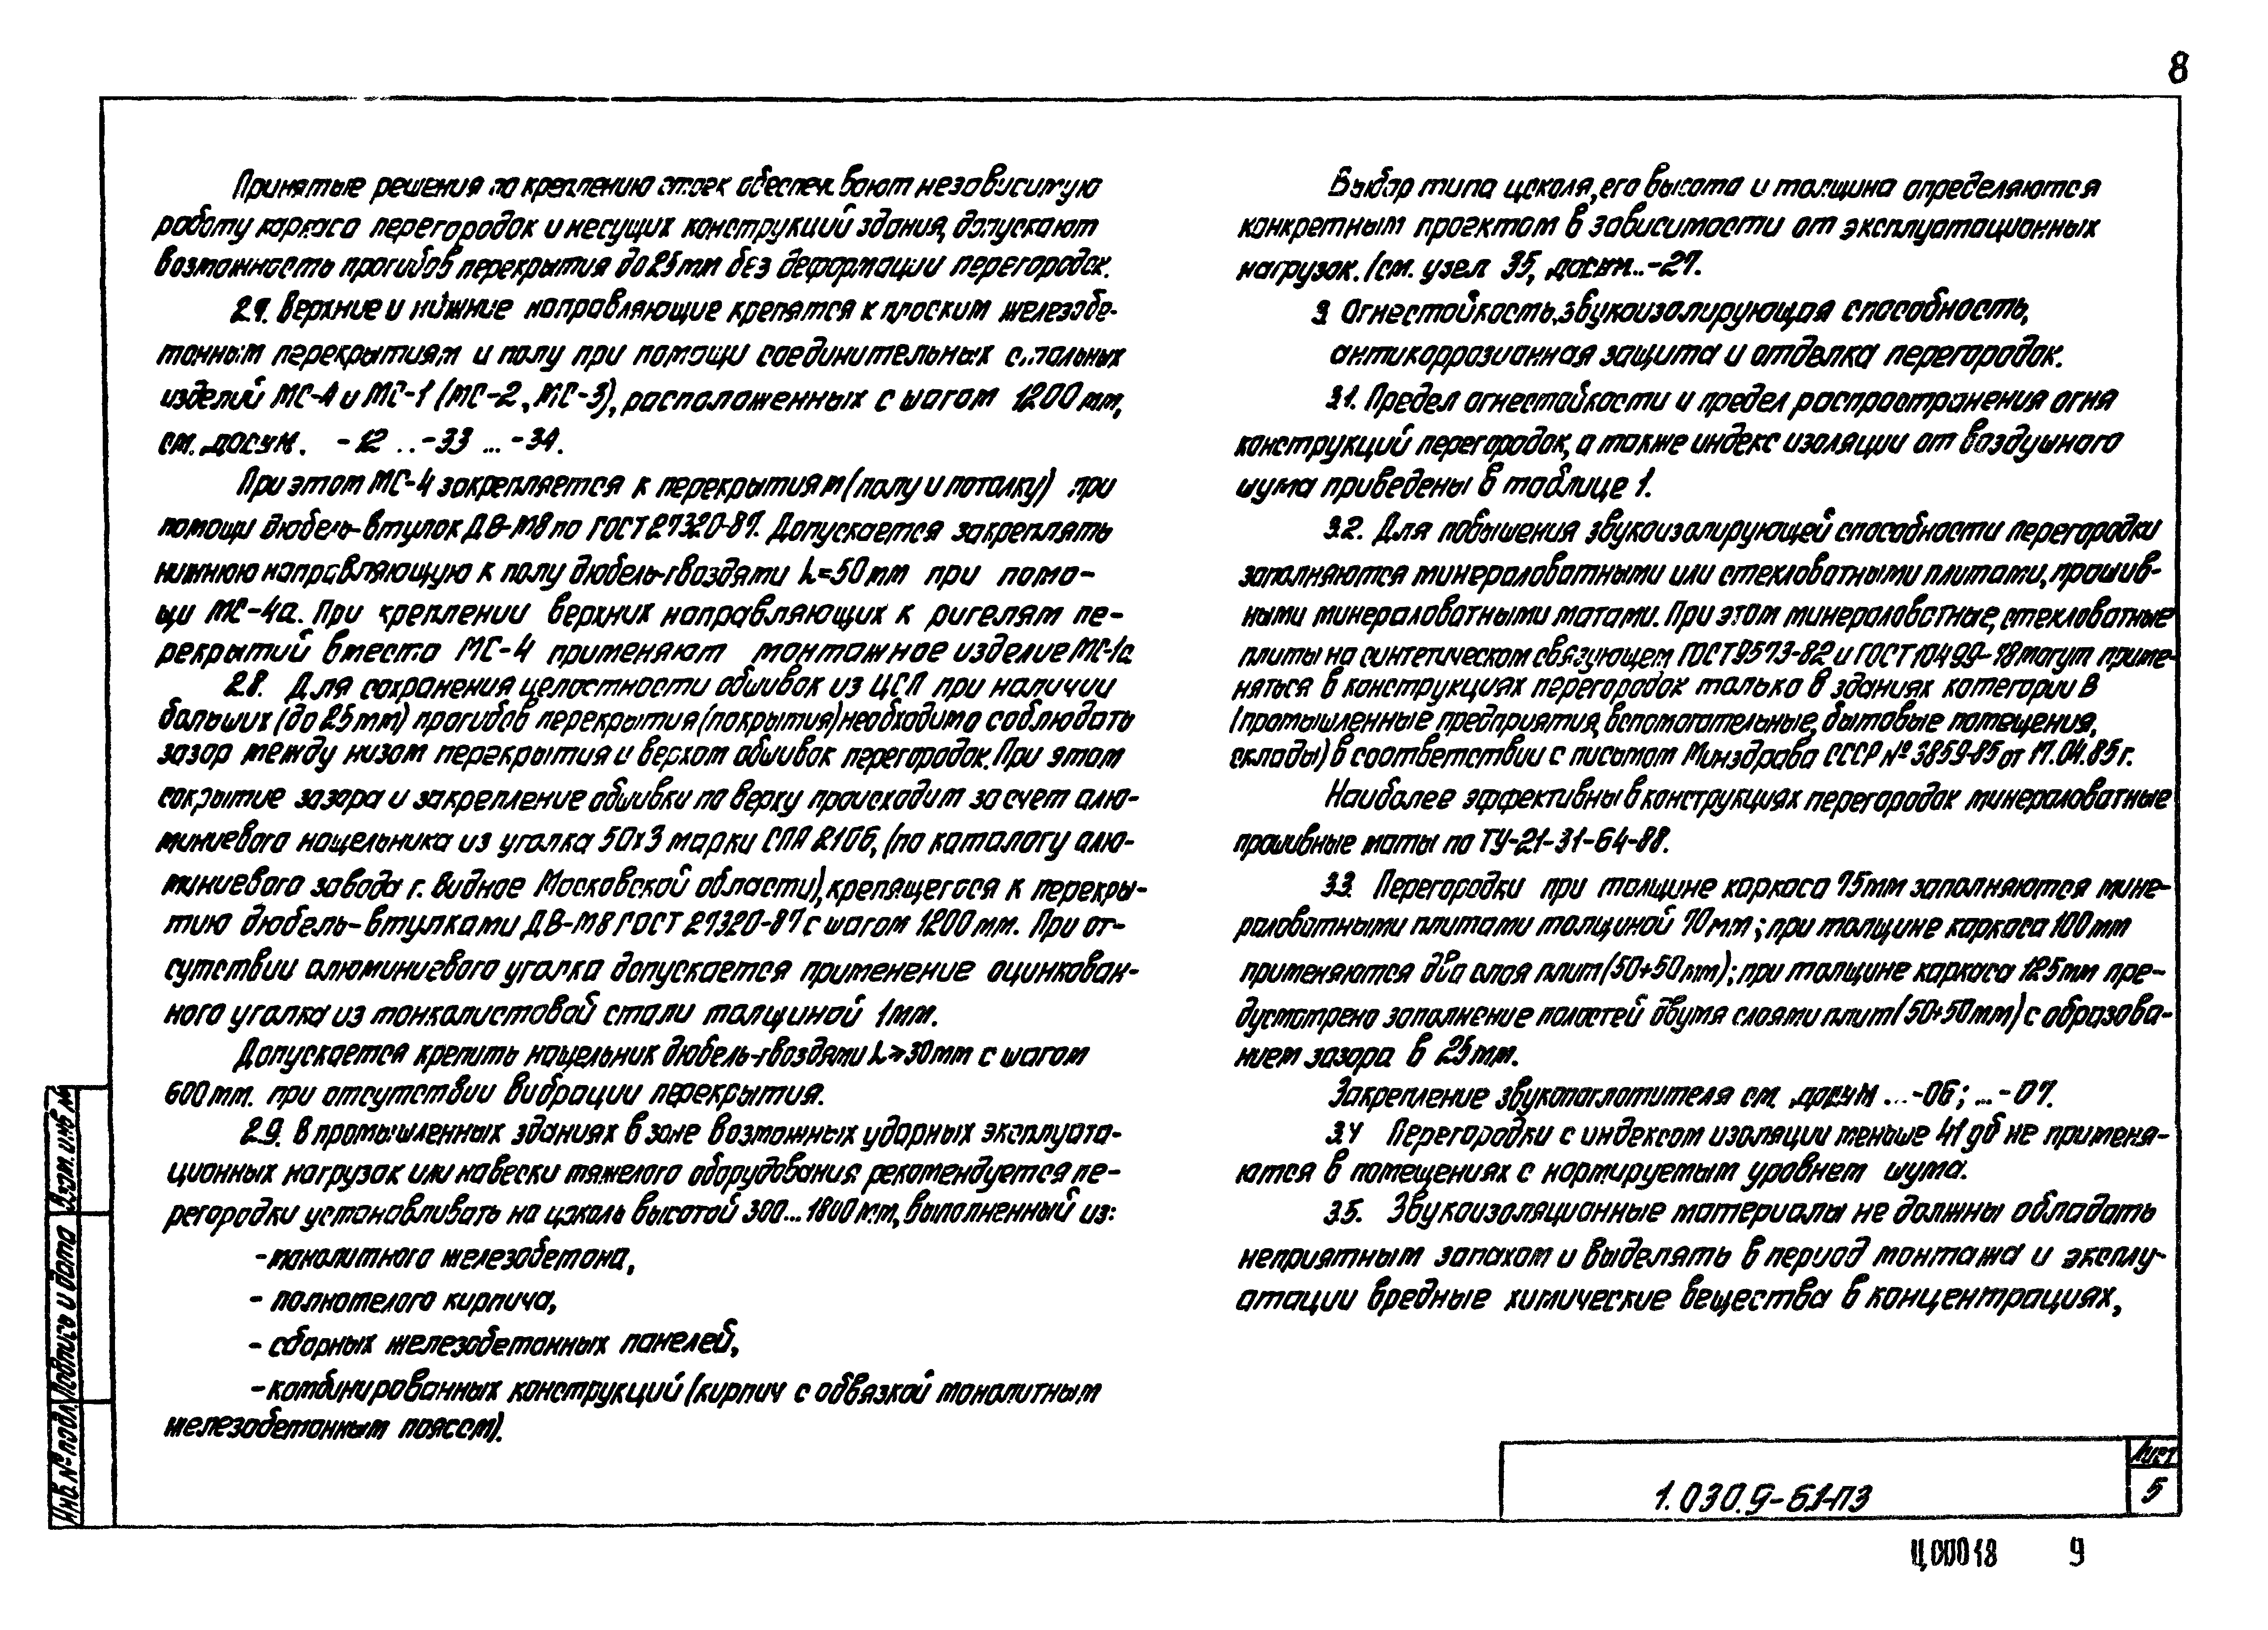 8
Принятые решения по креплению стоек обеспечивают независимую
работу каркаса перегородок и несущих конструкций здания, допускают
возможность прогибов перекрытия до 25 мм без деформации перегородок.
2.7. Верхние и нижние направляющие крепятся к плоским железобе-
тонным перекрытиям и полу при помощи соединительных стальных
изделий МС-4 и МС-1 (МС-2, МС-3), расположенных с шагом 1200 мм,
см. докум. -12 ..-33 ... -34.
При этом МС-4 закрепляется к перекрытиям (полу и потолку) при
помощи дюбель-втулок ДВ-М8 по ГОСТ 27320-87. Допускается закреплять
нижнюю направляющую к полу дюбель-гвоздями L=50 мм при помо-
щи МС-4а. При креплении верхних направляющих к ригелям пе-
рекрытий вместо МС-4 применяют монтажное изделие МС-1а
2.8. Для сохранения целостности обшивок из ЦСП при наличии
больших (до 25 мм) прогибов перекрытия (покрытия) необходимо соблюдать
зазор между низом перекрытия и верхом обшивок перегородок. При этом
сокрытие зазора и закрепление обшивки по верху происходит за счет алю-
миниевого нащельника из уголка 50х3 марки СПА 2106, (по каталогу алю-
миниевого завода г. Видное Московской области), крепящегося к перекры-
тию дюбель-втулками ДВ-М8 ГОСТ 27320-87 с шагом 1200 мм. При от-
сутствии алюминиевого уголка допускается применение оцинкован-
ного уголка из тонколистовой стали толщиной 1 мм.
Допускается крепить нащельник дюбель-гвоздями L≥30 мм с шагом
600 мм. при отсутствии вибрации перекрытия.
2.9. В промышленных зданиях в зоне возможных ударных эксплуата-
ционных нагрузок или навески тяжелого оборудования рекомендуется пе-
регородки устанавливать на цоколь высотой 300... 1800 мм, выполненный из:
-монолитного железобетона,
- полнотелого кирпича,
- сборных железобетонных панелей,
-комбинированных конструкций (кирпич с обвязкой монолитным
железобетонным поясом).
Выбор типа цоколя, его высота и толщина определяются
конкретным проектом в зависимости от эксплуатационных
нагрузок. (см. узел 35, докум...-27.
3. Огнестойкость, звукоизолирующая способность,
антикоррозионная защита и отделка перегородок.
3.1. Предел огнестойкости и предел распространения огня
конструкций перегородок, а также индекс изоляции от воздушного
шума приведены в таблице 1.
3.2. Для повышения звукоизолирующей способности перегородки
заполняются минераловатными или стекловатными плитами, прошив-
ными минераловатными матами. При этом минераловатные, стекловатные
плиты на синтетическом связующем ГОСТ 9573-82 и ГОСТ 10499-78 могут приме-
няться в конструкциях перегородок только в зданиях категории В
(промышленные предприятия, вспомогательные, бытовые помещения,
склады) в соответствии с письмом Минздрава СССР № 3859-85 от 17.04.85 г.
Наиболее эффективны в конструкциях перегородок минераловатные
прошивные маты по ТУ-21-31-64-88.
3.3. Перегородки при толщине каркаса 75 мм заполняются мине-
раловатными плитами толщиной 70 мм; при толщине каркаса 100 мм
применяются два слоя плит (50+50 мм); при толщине каркаса 125 мм пре-
дусмотрено заполнение полостей двумя слоями плит (50+50 мм) с образова-
нием зазора в 25 мм.
Закрепление звукопоглотителя см. докум ...-06; ...-07.
3.4 Перегородки с индексом изоляции меньше 41 дб не применя-
ются в помещениях с нормируемым уровнем шума.
3.5. Звукоизоляционные материалы не должны обладать
неприятным запахом и выделять в период монтажа и эксплу-
атации вредные химические вещества в концентрациях,
Инв. № подл. Подпись и дата Взам. инв №
1.030.9-6.1-ПЗ
Лист
5
Ц00018 9